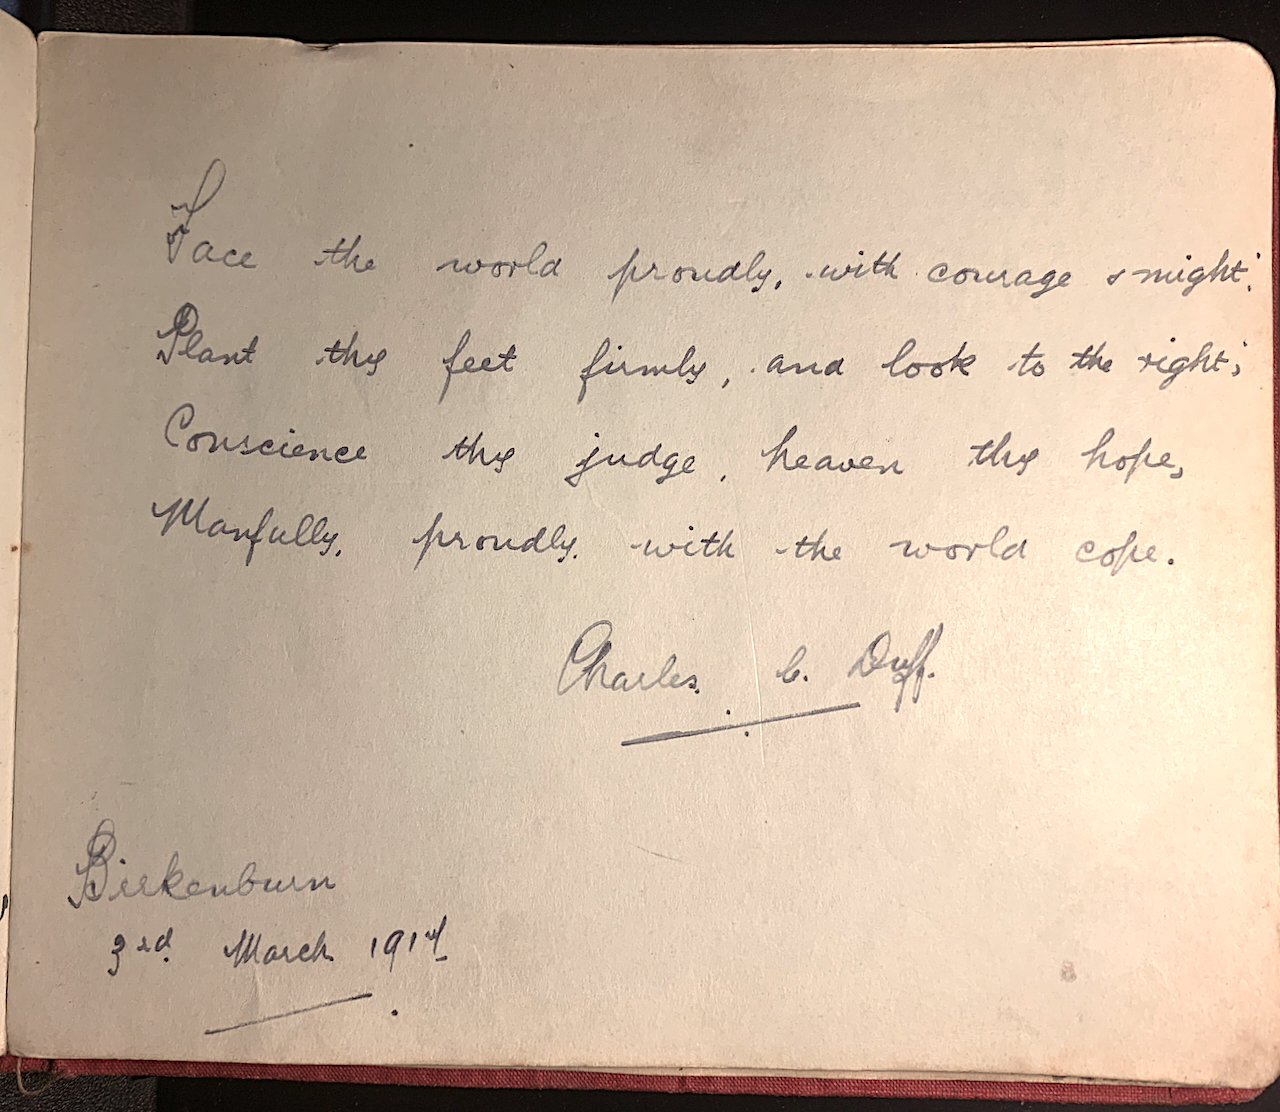 Face the world proudly, with courage & might;
Plant thy feet firmly, and look to the right;
Conscience thy judge, heaven thy hope,
Manfully, proudly, with the world cope.
Charles C. Duff.
Birkenburn
3rd March